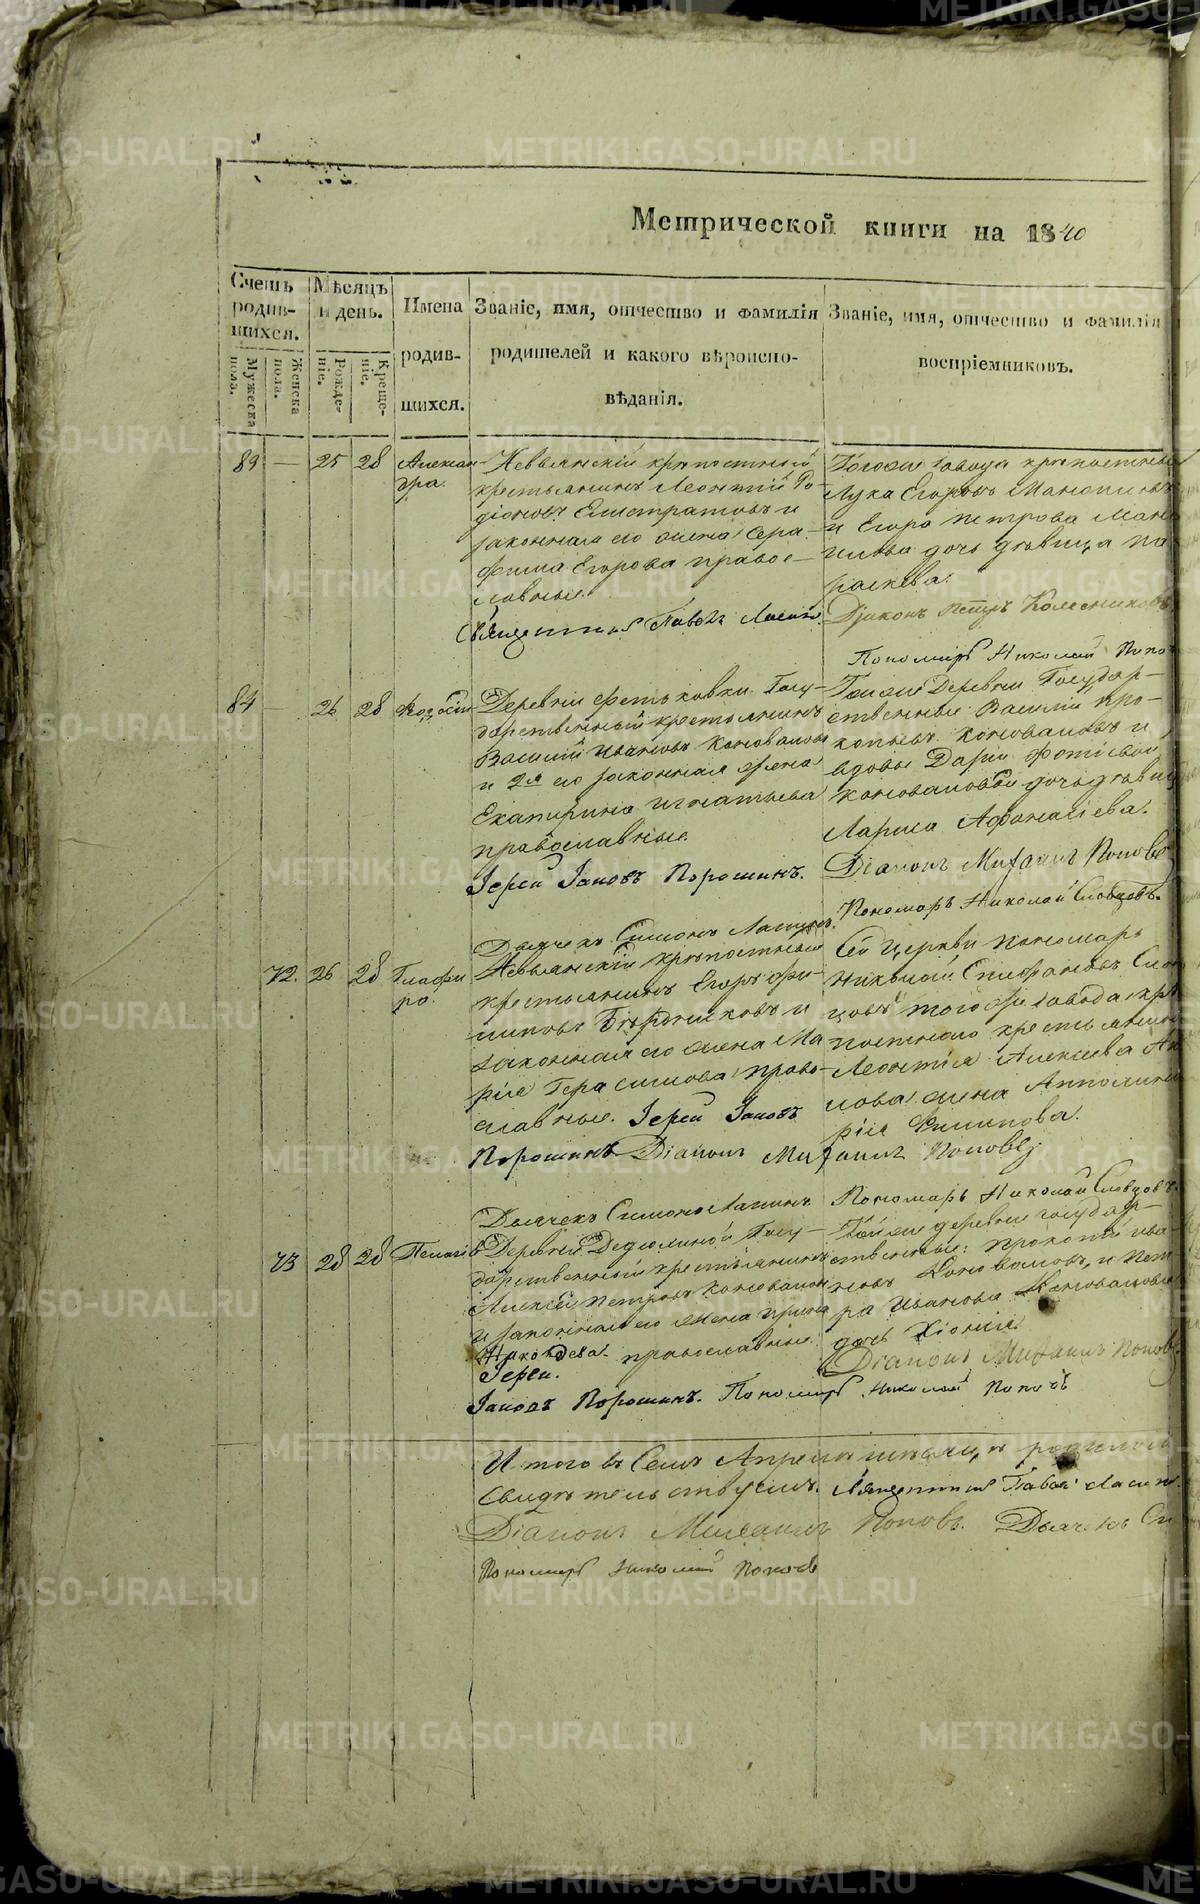 Метрической книги на 1840
Счетъ родив- шихся.
Мужеска пола.
Женска пола.
Мѣсяцъ и день.
Рожде- ніе.
Креще- ніе.
Имена родив- шихся.
Званіе, имя, отчество и фамилія
родителей и какого вѣроиспо-
вѣданія.
Званіе, имя, отчество и фамилія
воспріемниковъ.
83 — 25 28
Алексан-
дра.
Невьянскій крѣпостный
крестьянинъ Леонтій Ро-
діоновъ Елистратовъ и
законная его жена Сера-
фима Егорова правос-
лавные.
Священникъ Павелъ
Тогоже завода крѣпостные
Лука Егоровъ
и Егора Петрова
дочь дѣвица Па
раскева.
Діаконъ Петръ Колесниковъ
Пономарь Николай Попо
84 — 26 28
Деревни Фетьковки Госу-
дарственный крестьянинъ
Василій Ивановъ Коноваловъ
и 2я его законная жена
Екатерина Игнатьева
православные.
Іерей Іаковъ Порошинъ.
Дьячекъ Симонъ
Тойже Деревни Государ-
ственные Василій Про-
копьевъ Коноваловъ и
вдовы Дарьи Фотіевой
Коноваловой дочь дѣвица
Лариса Афанасіева.
Діаконъ Михаилъ Поповъ
Пономарь Николай Словцовъ.
72. 26 28
Глафи
ра.
Невьянскій крѣпостный
крестьянинъ Егоръ Фи-
липовъ и
законная его жена Ма
рія Герасимова право-
славные. Іерей Іаковъ
Порошинъ Діаконъ Михаилъ Поповъ
Дьячекъ Симонъ
Сей Церкви пономарь
Николай Епифановъ Слов
цовъ и тогоже завода крѣ
постнаго крестьянина
Леонтія Алексѣева
жена Апполина
рія Филипова.
Пономарь Николай Словцовъ.
73 28 28
Пелагія
Деревни Дедюлиной Госу-
дарственный крестьянинъ
Алексѣй Петровъ Коноваловъ
и законная его жена Ирина
православные.
Іерей.
Іаковъ Порошинъ. Пономарь Николай Поповъ
Тойже деревни государ-
ственные: Прокопій Ива
новъ Коноваловъ, и Пет
ра Иванова Коновалова
дочь Хіонія.
Діаконъ Михаилъ Поповъ
Итого въ Семъ Апрелѣ мѣсяцѣ
Свидѣтельствуемъ. Священникъ Павелъ
Діаконъ Михаилъ Поповъ. Дьячекъ Си
Пономарь Николай Поповъ
METRIKI.GASO-URAL.RU